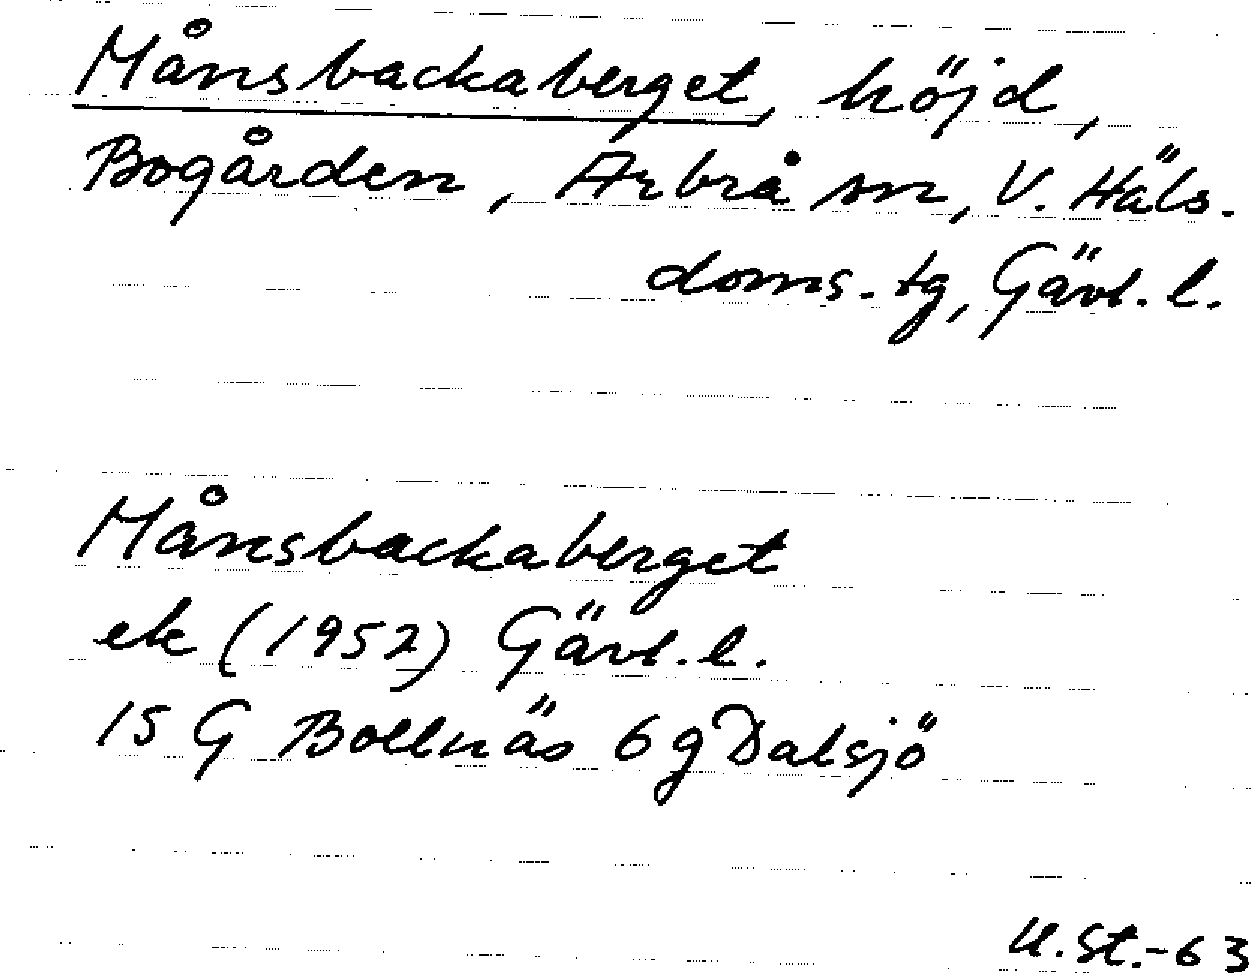 Månsbackaberget, höjd,
Bogården, Arbrå sn, V. Häls.
doms. tg, Gävl. l.
Månsbackaberget
ek (1952) Gävl. l.
15 G Bollnäs 6 g Dalsjö
U.St.-63